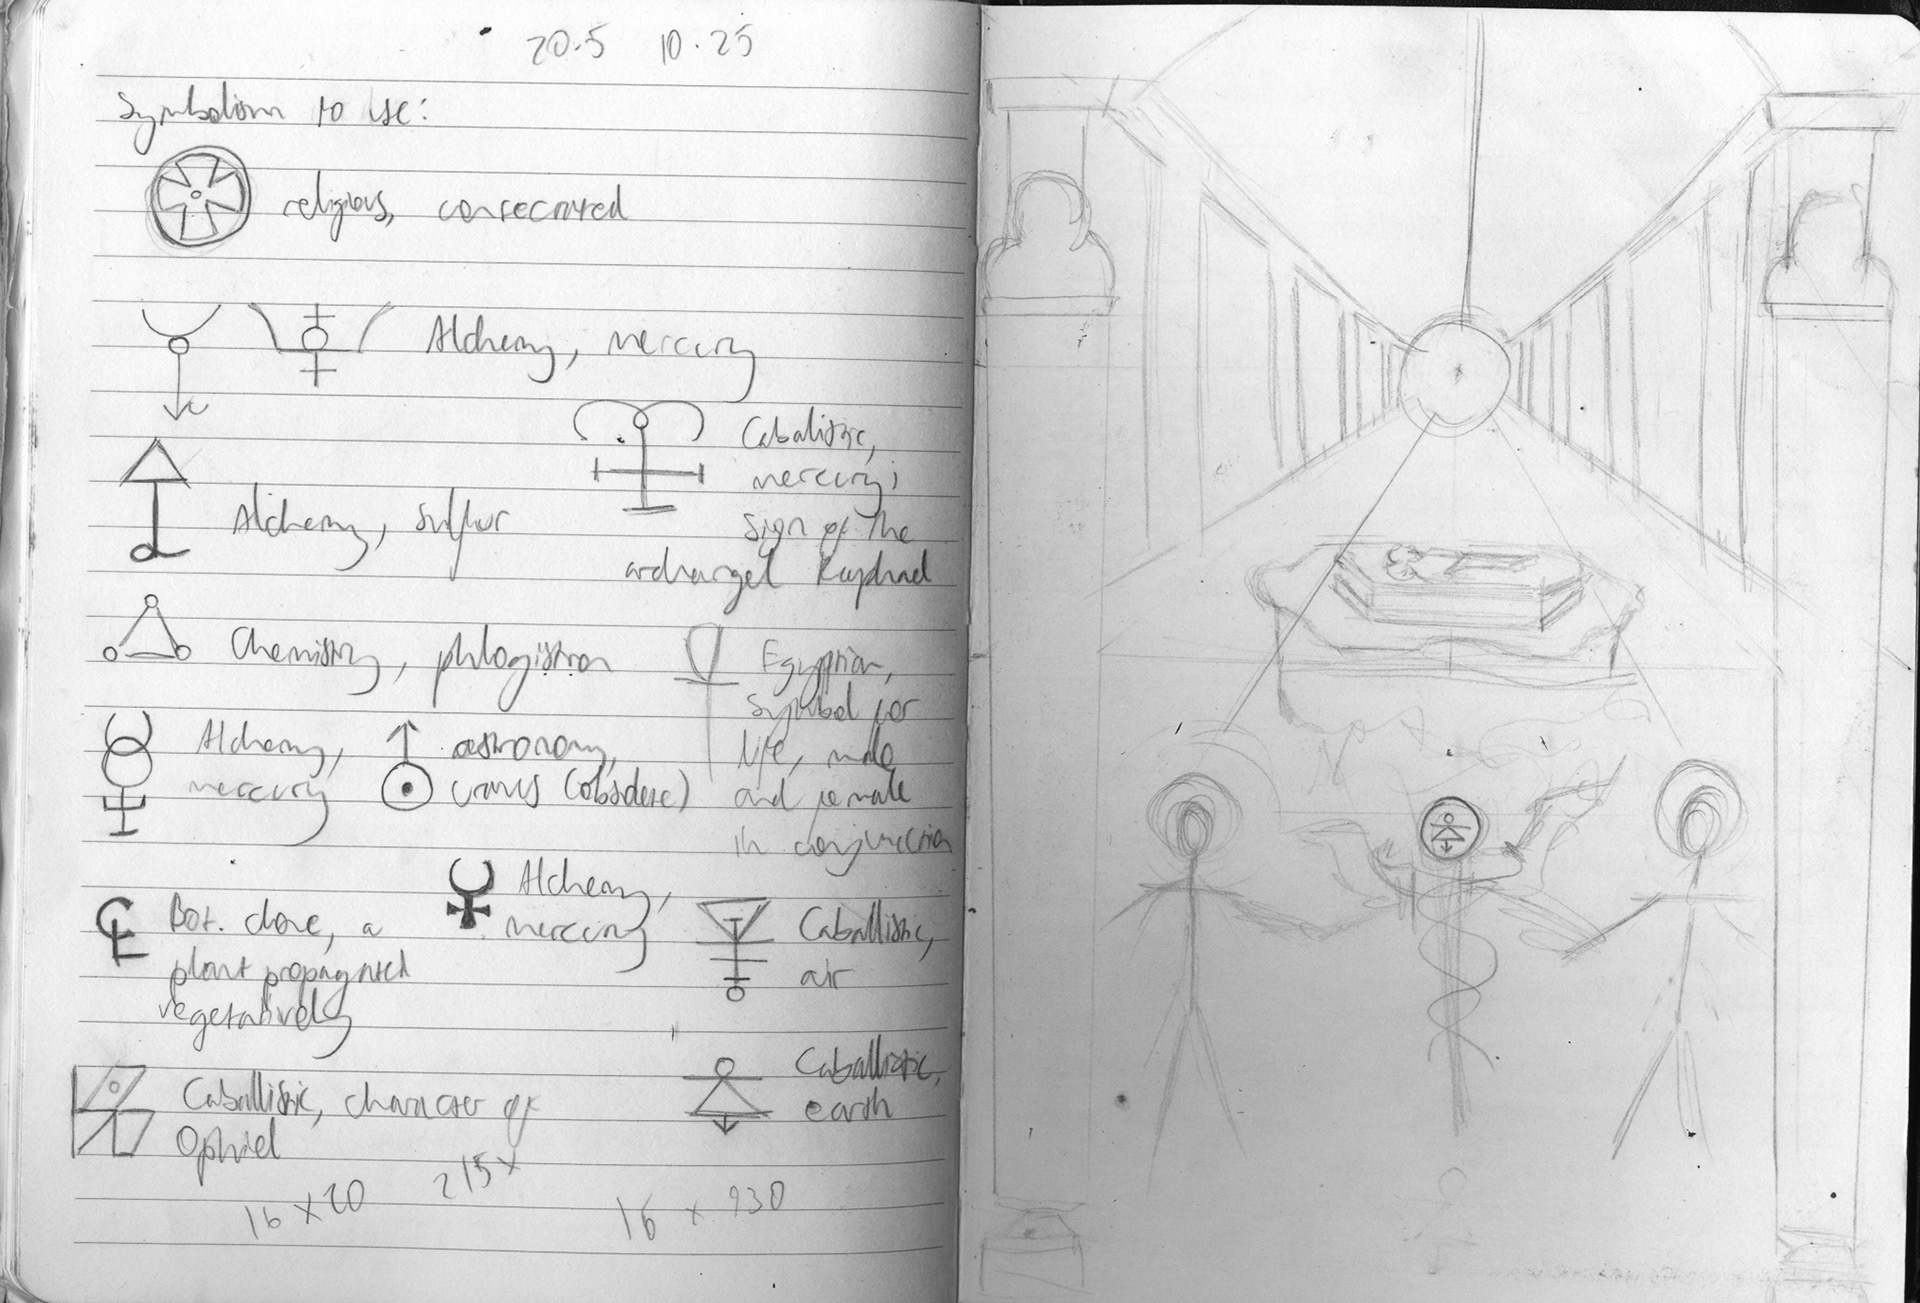 20.5 10.25
Symbolism to use:
religious, consecrated
Alchemy, mercury
Cabalistic,
mercury;
sign of the
archangel Raphael
Alchemy, sulfur
Chemistry, phlogiston
Egyptian,
symbol for
life, male
and female
in conjunction
Alchemy,
mercury
astronomy,
uranus (obsolete)
Bot. clone, a
plant propagated
vegetatively
Alchemy,
mercury
Caballistic,
air
Caballistic, character of
Ophiel
Caballistic,
earth
16 x 20
215 x
16 x 930